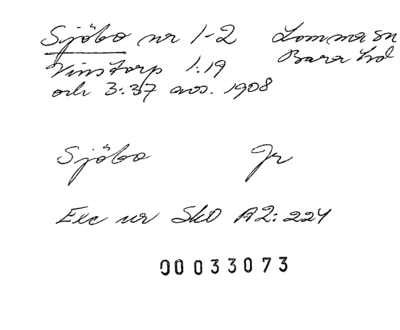 Sjöbo nr 1-2 Lomma sn
Vinstorp 1:19 Bara hd
och 3:37 avs. 1908
Sjöbo Gr
Exc nr Sk0 A2:224
00033073